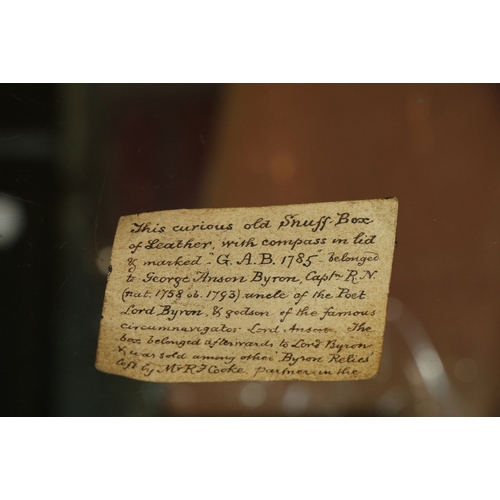 This curious old Snuff-Box
of Leather, with compass in lid
& marked "G.A.B. 1785" belonged
to George Anson Byron, Captn R.N.
(nat. 1758 ob. 1793) uncle of the Poet
Lord Byron, & godson of the famous
circumnavigator Lord Anson. The
box belonged afterwards to Lord Byron
& was sold among other 'Byron Relics'
left by Mr R J Cooke, partner in the